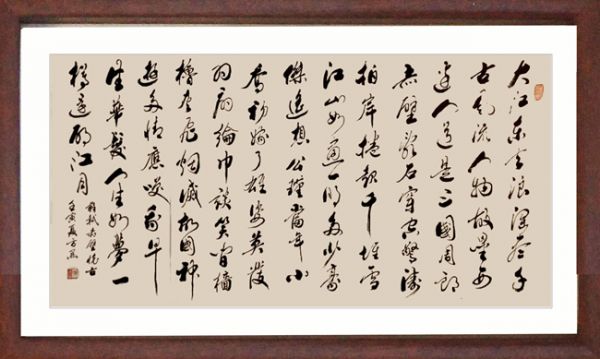 大江东去浪淘尽千
古风流人物故垒西
边人道是三國周郎
赤壁乱石穿空惊涛
拍岸捲起千堆雪
江山如画一时多少豪
傑遥想公瑾當年小
乔初嫁了雄姿英发
羽扇纶巾谈笑间檣
橹灰飛烟滅故國神
遊多情應笑我早
生華髮人生如夢一
樽還酹江月
蘇軾赤壁懷古
壬寅夏方